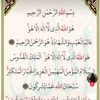 بِسْمِ اللَّهِ الرَّحْمَنِ الرَّحِيمِ
هُوَ اللَّهُ الَّذِي لَا إِلَهَ إِلَّا هُوَ
عَالِمُ الْغَيْبِ وَالشَّهَادَةِ هُوَ الرَّحْمَنُ الرَّحِيمُ
هُوَ اللَّهُ الَّذِي لَا إِلَهَ إِلَّا هُوَ الْمَلِكُ الْقُدُّوسُ
السَّلَامُ الْمُؤْمِنُ الْمُهَيْمِنُ الْعَزِيزُ الْجَبَّارُ الْمُتَكَبِّرُ
سُبْحَانَ اللَّهِ عَمَّا يُشْرِكُونَ